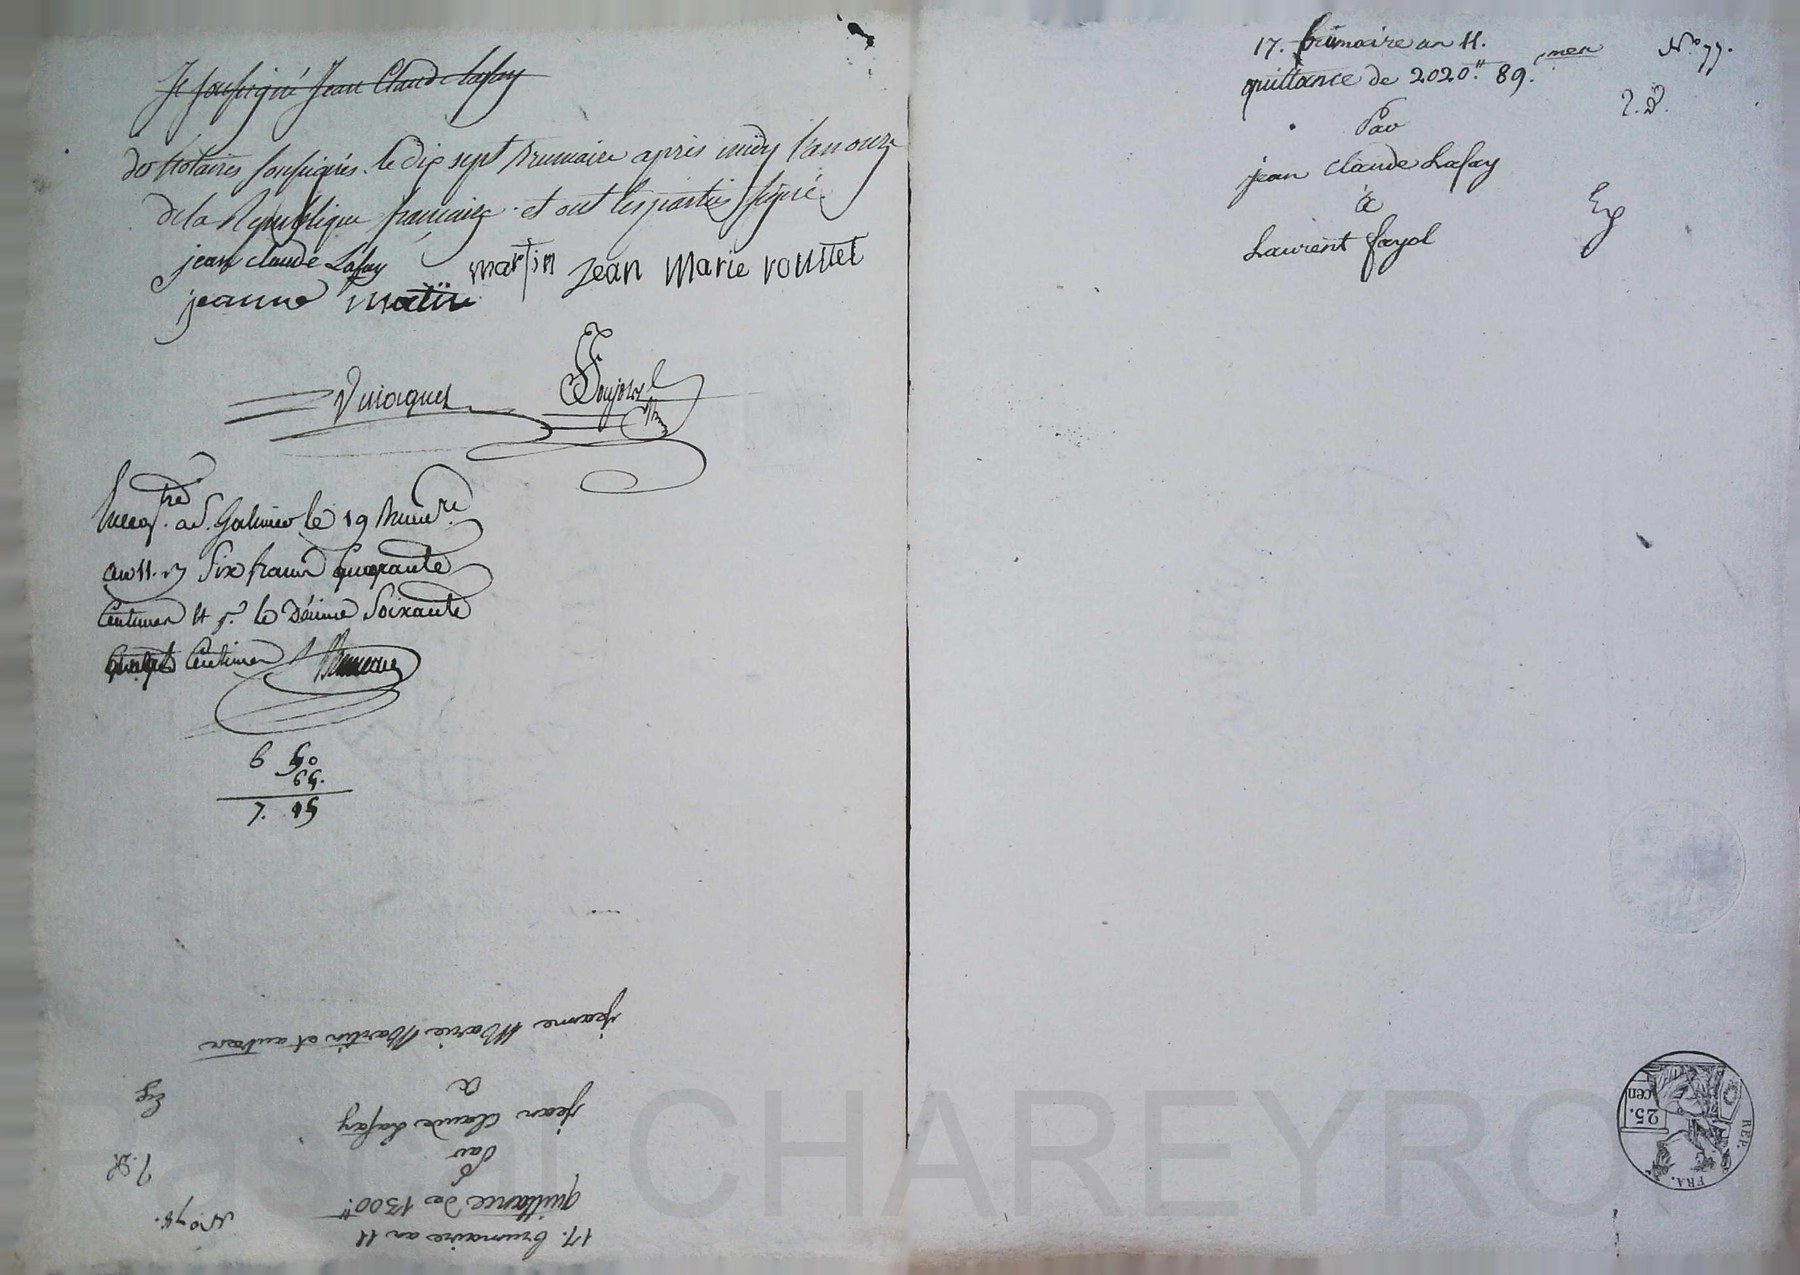 Je soussigné Jean Claude Lafay
de Notaires soussignés. le dix sept brumaire après midy l'an onze
de la République française. et ont les parties signé.
jean claude Lafay martin jean Marie rouster
jeanne matin
Enreg.tré à S. Galmier le 19 brum.re
an 11. Six francs quarante
centimes et p.r le Décime Soixante
centimes
7.
17. brumaire an 11.
quittance de 2020.ᴴ 89. N.o 77.
Par
jean claude Lafay
à
Laurent fayol
17. brumaire an 11
quittance de 1300ᴴ N.o 78.
Par
jean claude Lafay
à
jeanne Marie Martin et autres
REP. FRA.
25. cen
Pascal CHAREYRON